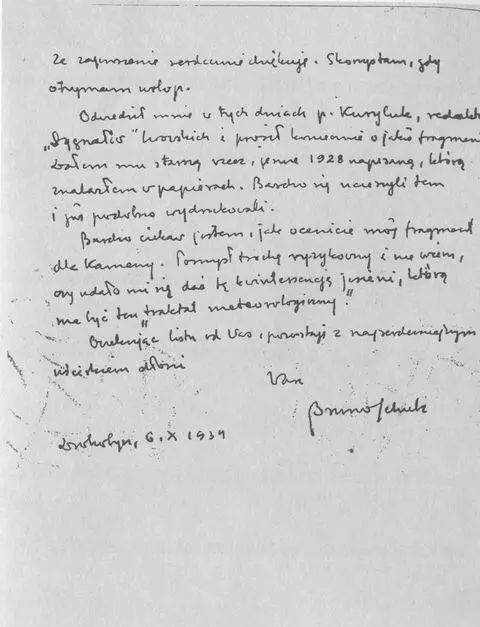 Za zaproszenie serdecznie dziękuję. Skorzystam, gdy
otrzymam urlop.
Odwiedził mnie w tych dniach p. Kuryluk, redaktor
„Sygnałów" lwowskich i prosił koniecznie o jakiś fragment
Dałem mu starą rzecz, jeszcze 1928 napisaną, którą
znalazłem w papierach. Bardzo się ucieszyli tem
i już podobno wydrukowali.
Bardzo ciekaw jestem, jak ocenicie mój fragment
dla Kameny. Pomysł trochę ryzykowny i nie wiem,
czy udało mi się dać tę kwintesencję jesieni, którą
ma być ten „traktat meteorologiczny".
Oczekując listu od Was, pozostaję z najserdeczniejszym
uściskiem dłoni
Wasz
Bruno Schulz
Drohobycz, 6. X 1934